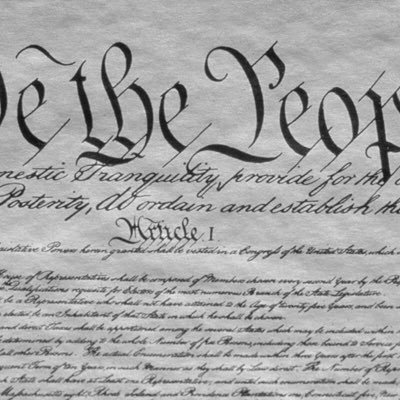 We the Peop
mestic Tranquility, provide for the
Posterity, do ordain and establish this
Article. I
islative Powers herein granted shall be vested in a Congress of the United States, which
House of Representatives shall be composed of Members chosen every second Year by the Peop
Qualifications requisite for Electors of the most numerous Branch of the State Legislature.
be a Representative who shall not have attained to the Age of twenty five Years, and been
elected, be an Inhabitant of that State in which he shall be chosen.
and direct Taxes shall be apportioned among the several States which may be included within
determined by adding to the whole Number of free Persons, including those bound to Service for
all other Persons. The actual Enumeration shall be made within three Years after the first
equent Term of ten Years, in such Manner as they shall by Law direct. The Number of Repre
ch State shall have at Least one Representative; and until such enumeration shall be made
Massachusetts eight, Rhode Island and Providence Plantations one, Connecticut five, New